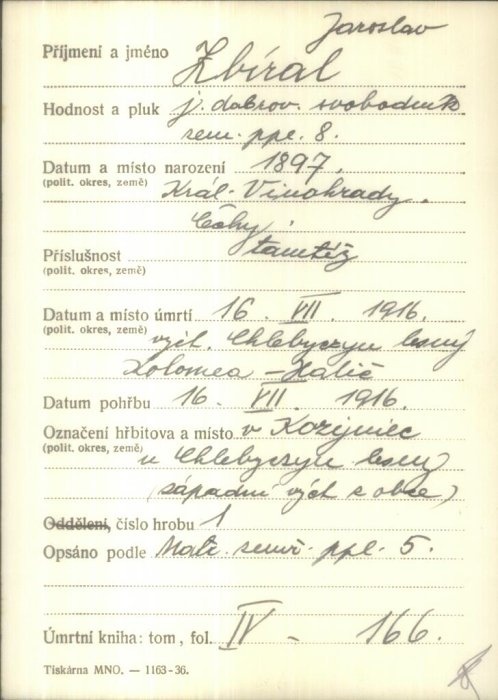 Jaroslav
Příjmení a jméno Zbíral
Hodnost a pluk j. dobrov. svobodník
zem. ppl. 8.
Datum a místo narození 1897.
(polit. okres, země) Král. Vinohrady.
Čechy.
Příslušnost tamtéž
(polit. okres, země)
Datum a místo úmrtí 16. VII. 1916.
(polit. okres, země) vých. Chlebyczyn lesný
Kolomea - Halič
Datum pohřbu 16. VII. 1916.
Označení hřbitova a místo v
(polit. okres, země) u Chlebyczyn lesný
(západní vých z obce)
Oddělení, číslo hrobu 1
Opsáno podle Matr. ppl. 5.
Úmrtní kniha: tom, fol. IV - 166.
Tiskárna MNO. — 1163-36.